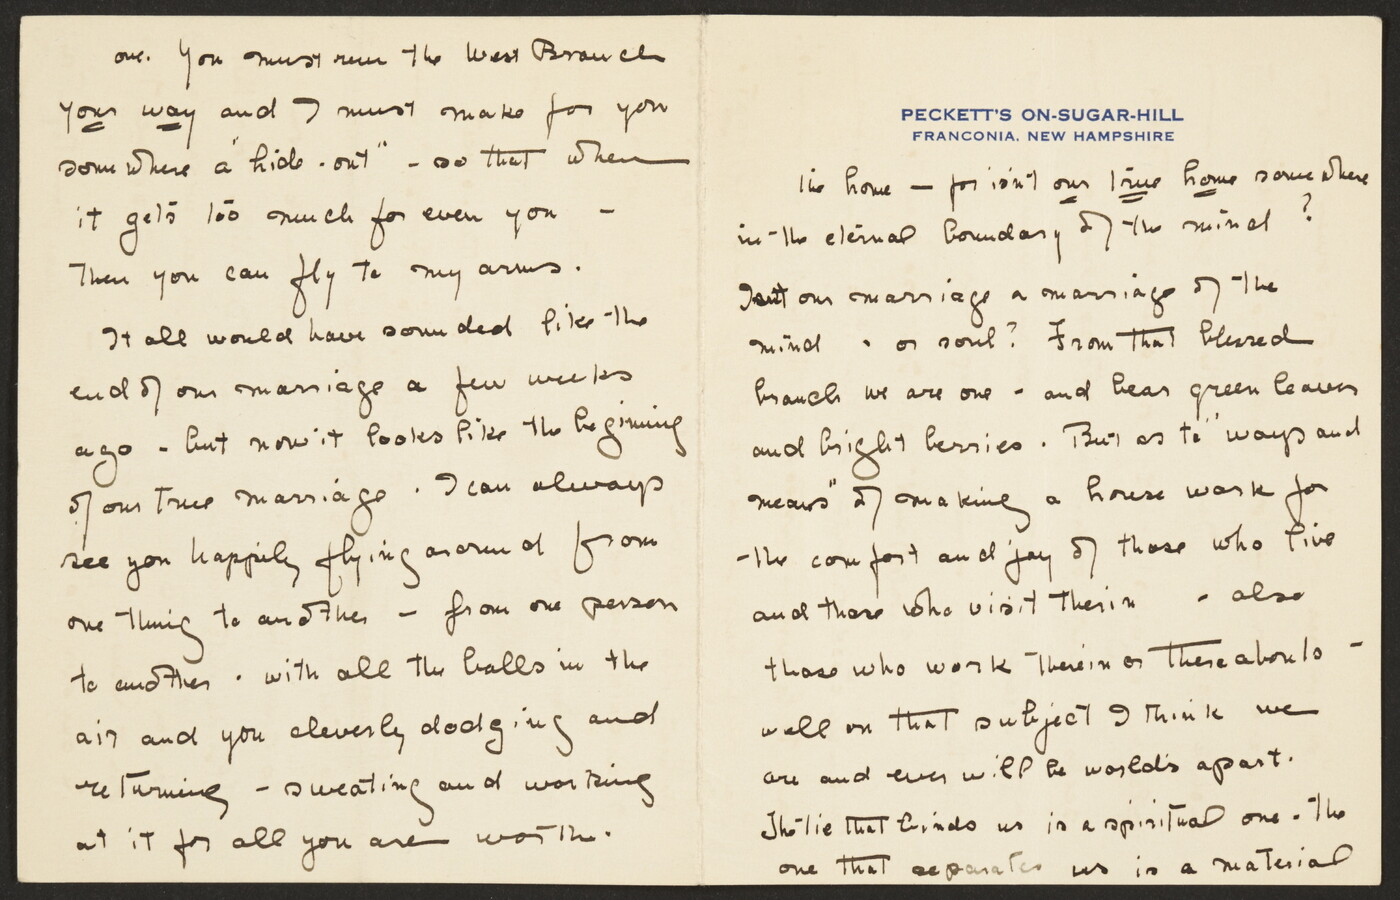 PECKETT'S ON-SUGAR-HILL
FRANCONIA, NEW HAMPSHIRE
the home — for isn't our true home somewhere
in the eternal boundary of the mind?
Isnt our marriage a marriage of the
mind . or soul? From that blessed
branch we are one - and bear green leaves
and bright berries. But as to "ways and
means" of making a house work for
the comfort and joy of those who live
and those who visit therin - also
those who work therein or thereabouts -
well on that subject I think we
are and ever will be worlds apart.
The tie that binds us is a spiritual one. The
one that separates us is a material
one. You must run the West Branch
your way and I must make for you
somewhere a "hide-out" - so that when
it gets too much for even you -
Then you can fly to my arms.
It all would have sounded like the
end of our marriage a few weeks
ago - but now it looks like the begining
of our true marriage. I can always
see you happily flying around from
one thing to another - from one person
to another. with all the balls in the
air and you cleverly dodging and
returning - sweating and working
at it for all you are worth.